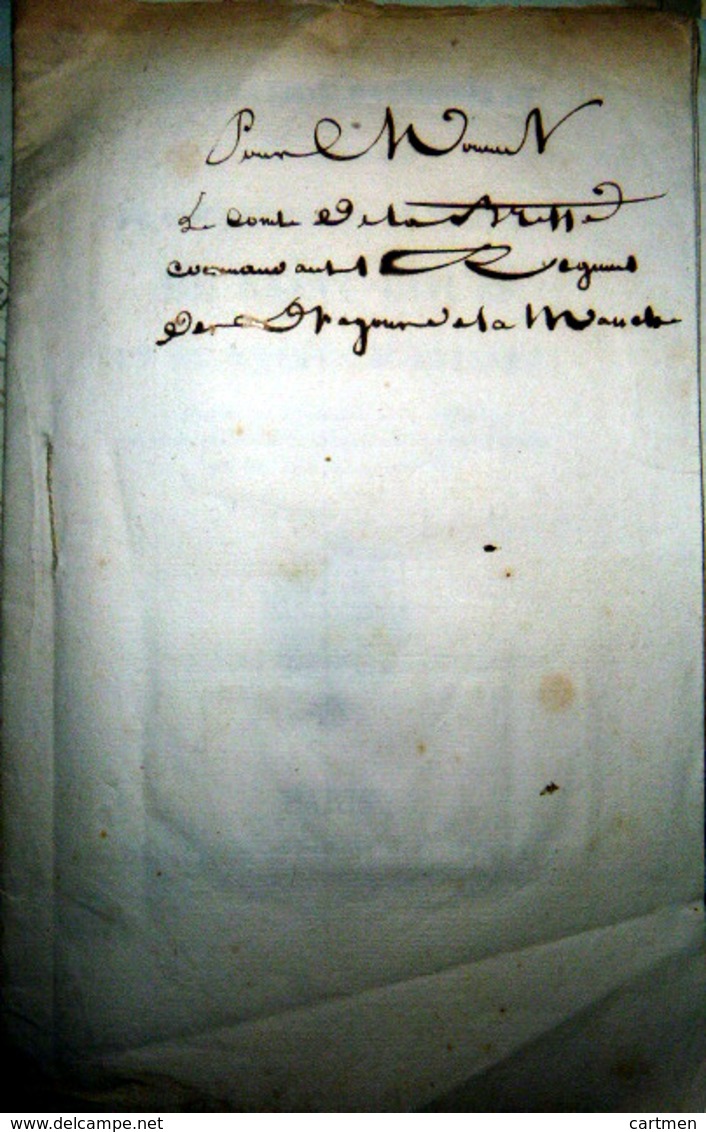 Pour Monsieur
Le comte De la
commandant le Regiment
Des Dragons De la Manche
www.delcampe.net
cartmen